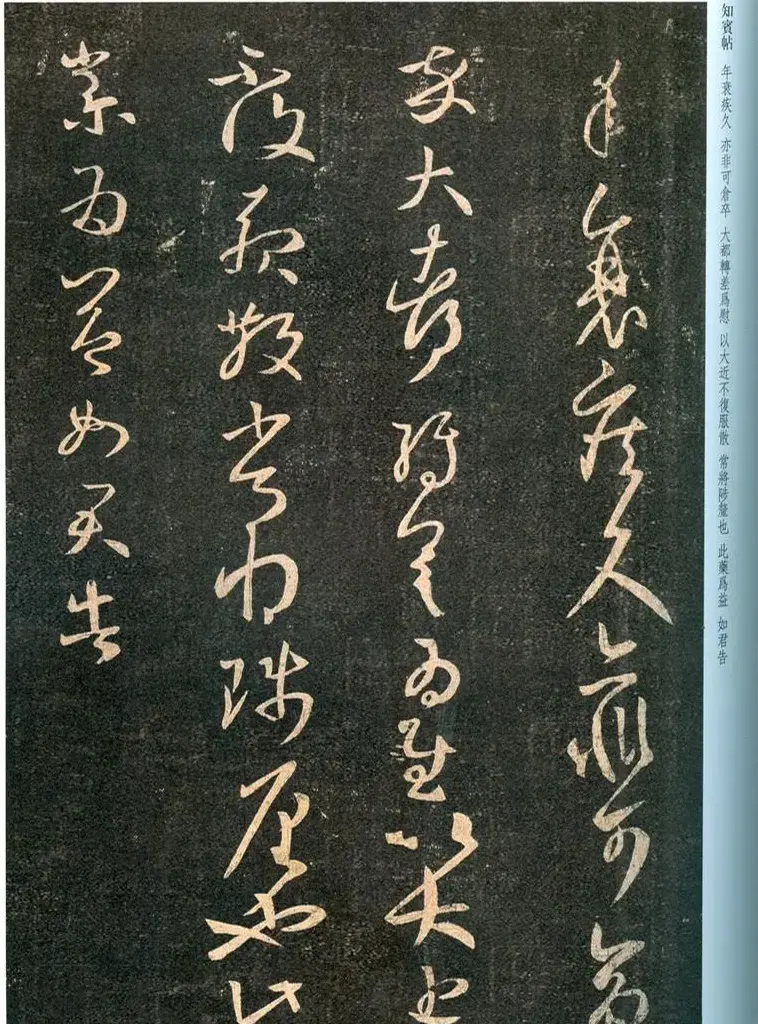 知賓帖 年衰疾久 亦非可倉卒 大都轉差爲慰 以大近不復服散 常將陟釐也 此藥爲益 如君告
年衰疾久亦非可倉
卒大都轉差爲慰以大近
不復服散常將陟釐也此
藥爲益如君告